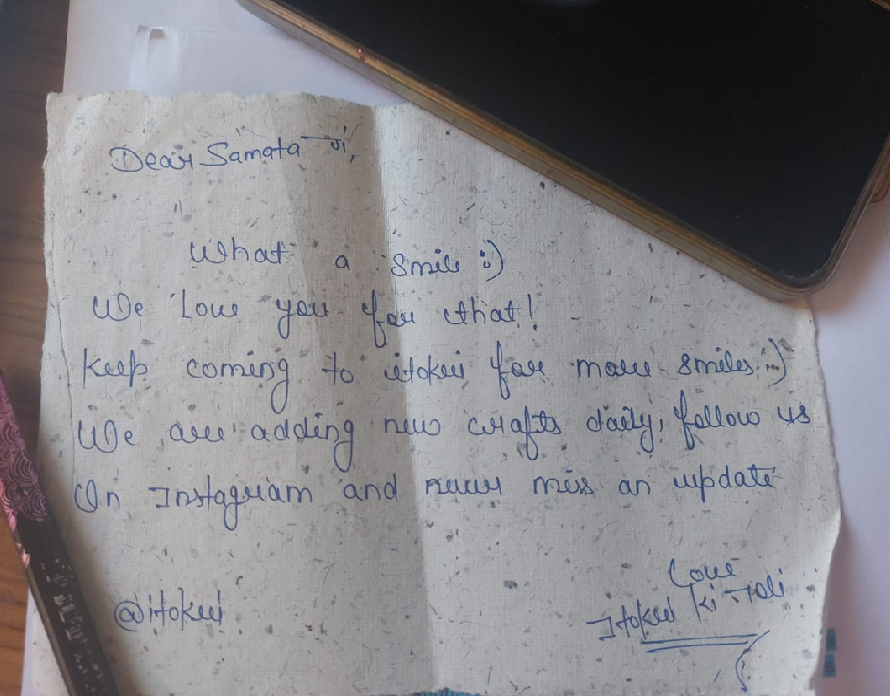 Dear Samata जी,
What a smile :)
We love you for that!
Keep coming to itokri for more smiles :)
We are adding new crafts daily, follow us
On Instagram and never miss an update
@itokri
Love
Itokri ki Toli